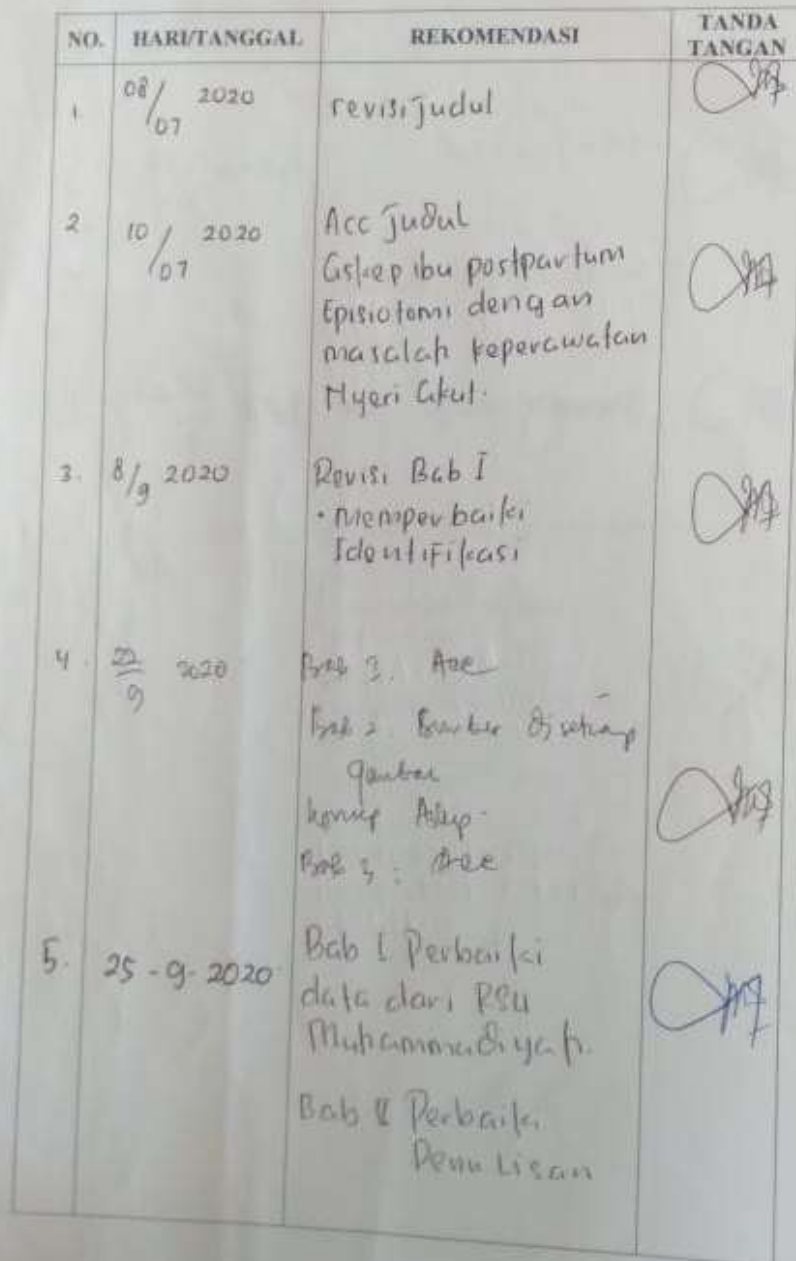 NO. HARI/TANGGAL REKOMENDASI TANDA TANGAN
1. 08/07 2020 revisi judul
2 10/07 2020 Acc judul
Askep ibu postpartum
Episiotomi dengan
masalah keperawatan
Nyeri Akut.
3. 8/9 2020 Revisi Bab I
• Memperbaiki
Identifikasi
4. 22/9 2020 Bab Acc
Bab 2 setiap
gambar
konsep Askep
Bab 3 : Acc
5. 25-9-2020 Bab I Perbaiki
data dari RSU
Muhammadiyah.
Bab II Perbaiki
Penulisan